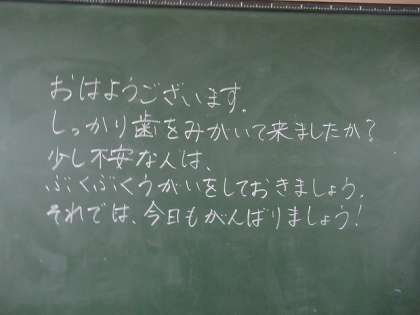 おはようございます。
しっかり歯をみがいて来ましたか?
少し不安な人は、
ぶくぶくうがいをしておきましょう。
それでは、今日もがんばりましょう!